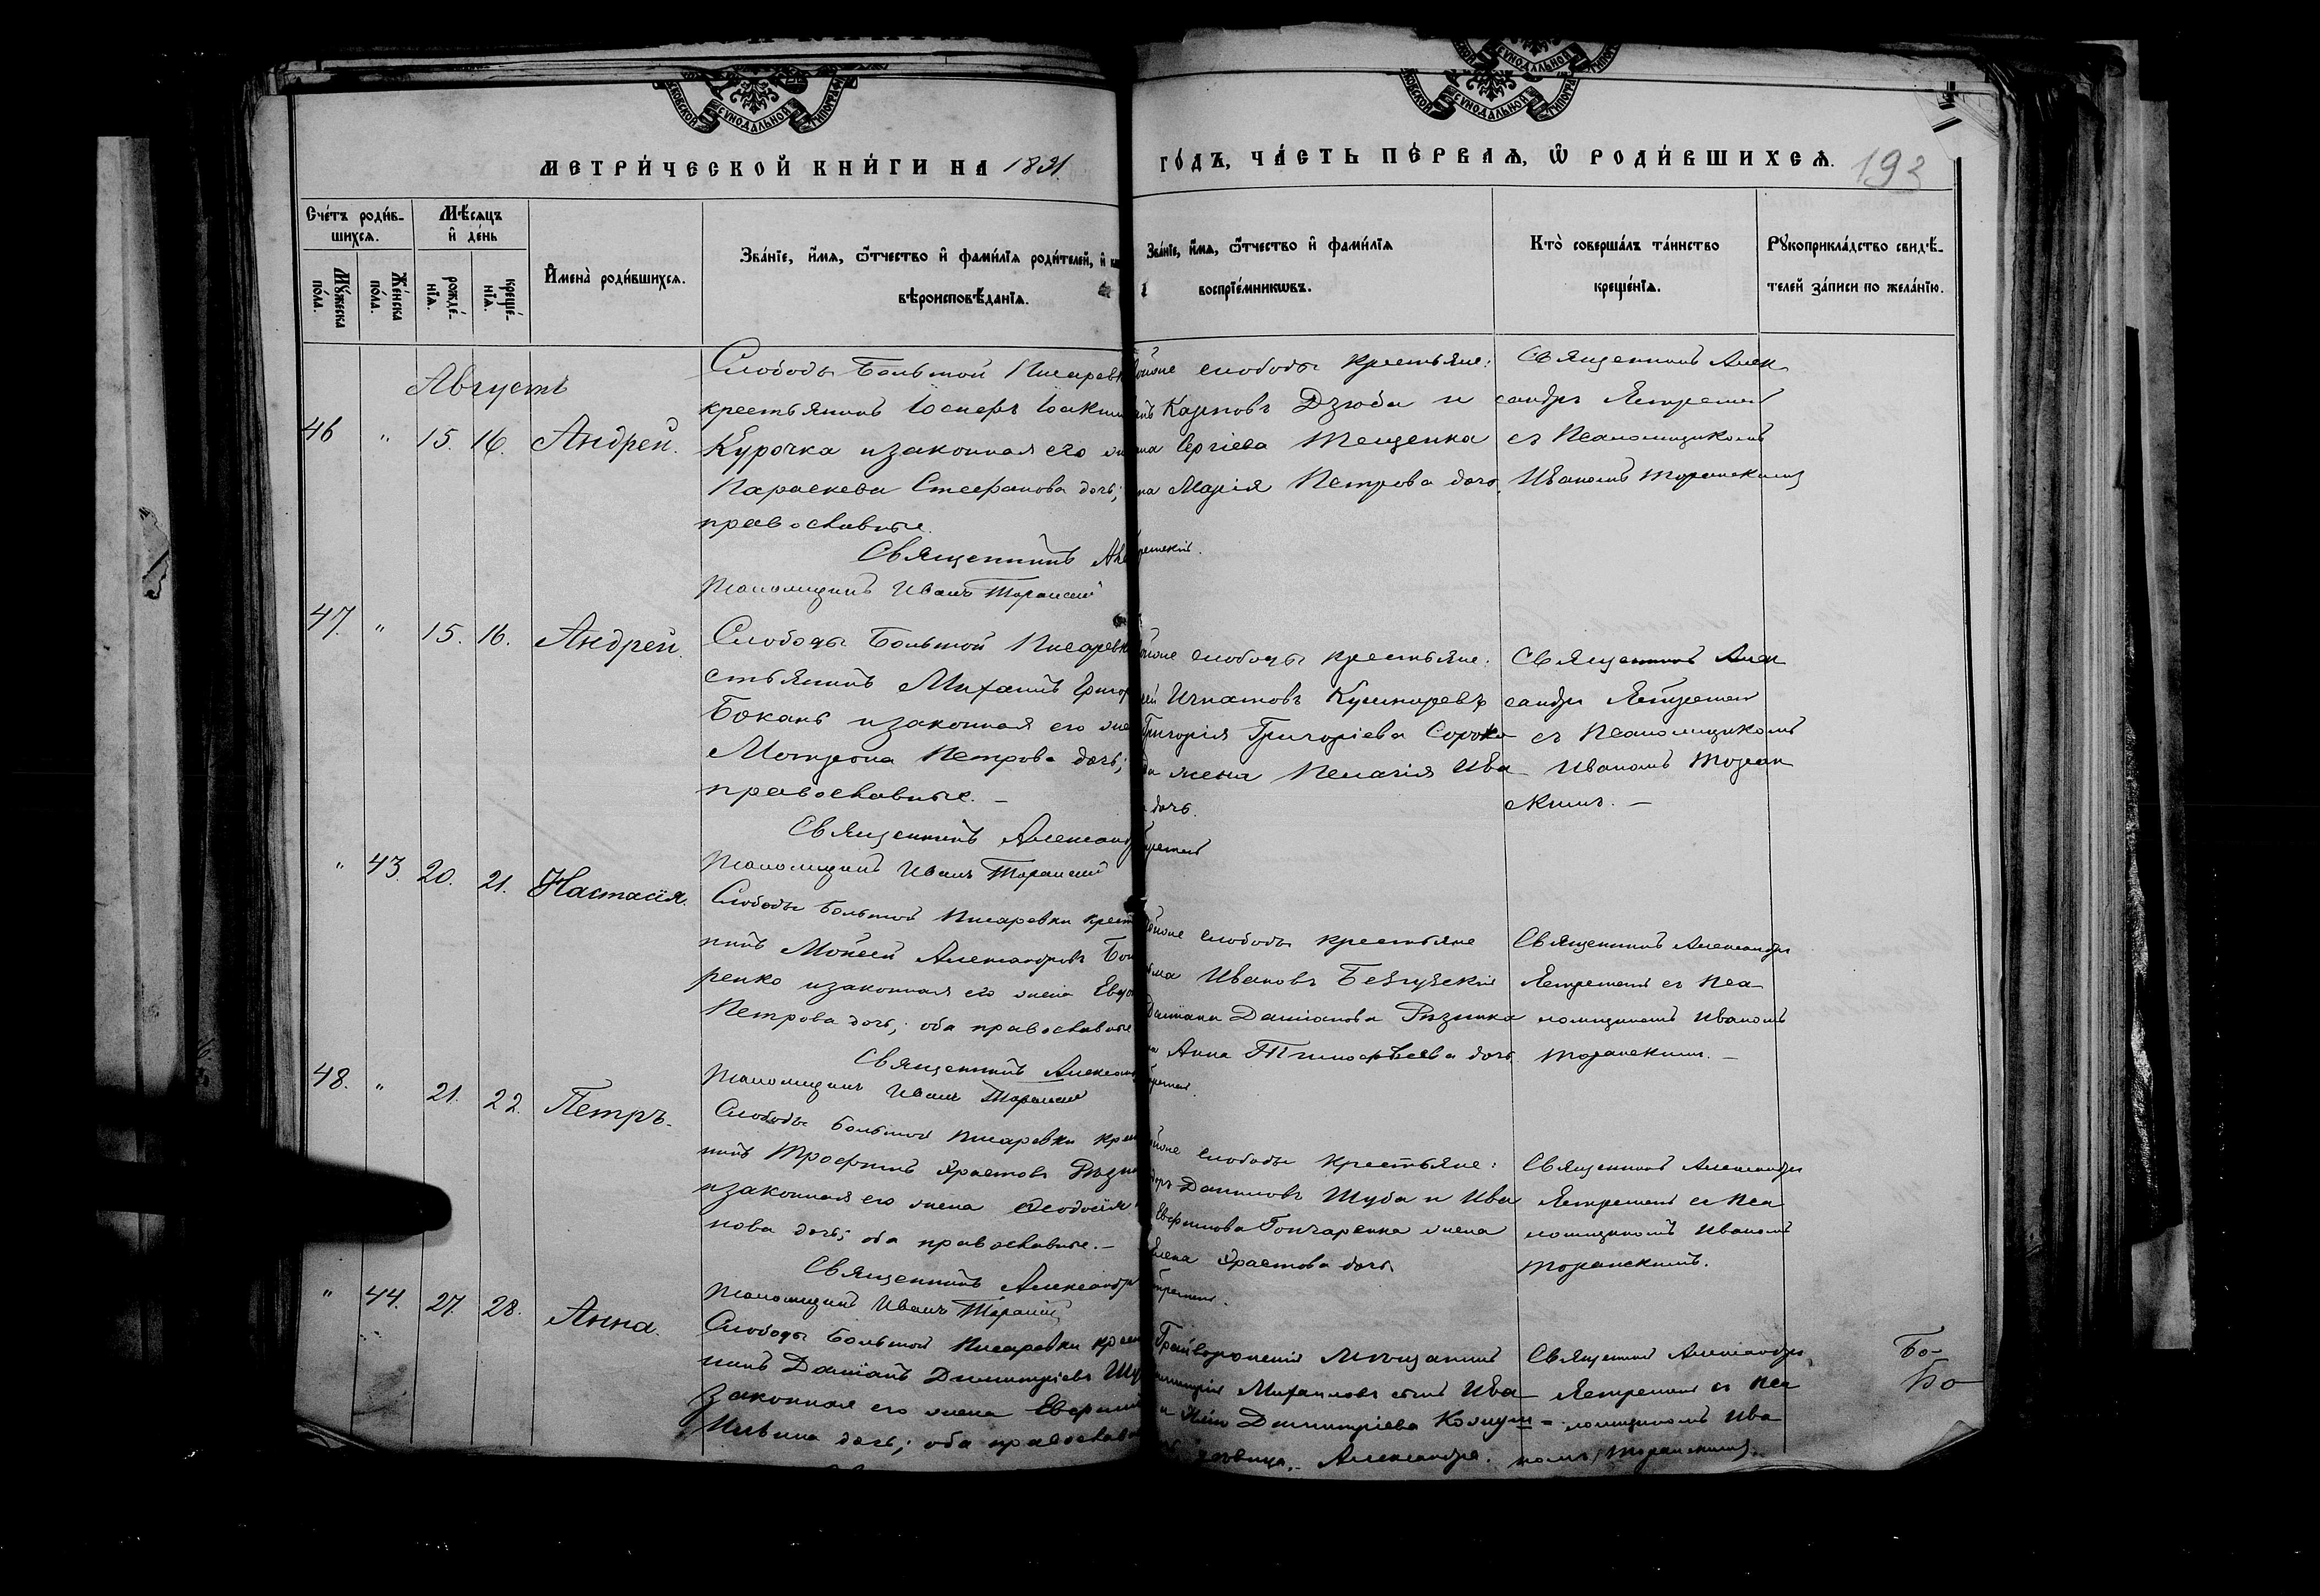 МЕТРИ́ЧЕСКОЙ КНИ́ГИ НА 1891
ГО́ДЪ, ЧА́СТЬ ПЕ́РВАѦ, Ѡ҆ РОДИ́ВШИХСѦ. 192
Сче́тъ роди́в-
шихсѧ.
Мꙋ́жеска по́ла.
Же́нска по́ла.
Мѣ́сѧцъ
и҆ де́нь
рожде́-
нїѧ.
креще́-
нїѧ.
И҆мена̀ роди́вшихсѧ.
Зва́нїе, и҆́мѧ, ѻ҆́тчество и҆ фами́лїѧ роди́телей, и҆
вѣроисповѣ́данїѧ.
Зва́нїе, и҆́мѧ, ѻ҆́тчество и҆ фами́лїѧ
воспрїе́мникѡвъ.
Кто̀ соверша́лъ та́инство
креще́нїѧ.
Рꙋкоприкла́дство свидѣ́-
телей за́писи по жела́нїю.
Августъ
46 " 15. 16. Андрей.
Слободы Большой Писаревк
крестьянинъ Іосифъ Іоаким
Курочка и законная его
Параскева Стефанова дочь;
православные.
Священникъ
Псаломщикъ Иванъ Торанскій
слободы крестьяне:
Карповъ Дзюба и
Сергіева Тещенка
Марія Петрова дочь.
Священникъ Алек
сандръ Ястремскій
съ Псаломщикомъ
Иваномъ Торанскимъ
47. " 15. 16. Андрей.
Слободы Большой Писаревк
стьянинъ Михаилъ Григор
Бокань и законная его
Мотрона Петрова дочь;
православные. —
Священникъ Александр
Псаломщикъ Иванъ Торанскій
слободы крестьяне:
Игнатовъ Кушнаревъ
Григорія Григоріева Сороко
жена Пелагія Ива
дочь.
Священникъ Алек
сандръ Ястремскій
съ Псаломщикомъ
Иваномъ Торан
скимъ. —
" 43. 20. 21. Настасія.
Слободы Большой Писаревки крест
нинъ Моисей Александровъ Бон
ренко и законная его жена Евдо
Петрова дочь; оба православные
Священникъ Александ
Псаломщикъ Иванъ Торанскій
слободы крестьяне
Ивановъ Безрузскій
Даміана Даміанова Рызника
Анна Тимофѣева дочь
Священникъ Александръ
Ястремскій съ Пса
ломщикомъ Иваномъ
Торанскимъ. —
48. " 21. 22. Петръ.
Слободы Большой Писаревки крест
нинъ Трофимъ Ѳрастовъ
и законная его жена Ѳеодосія
нова дочь; оба православные. —
Священникъ Александръ
Псаломщикъ Иванъ Торанскій
слободы крестьяне:
Даниловъ Шуба и Ива
Евфимова Гончаренка жена
Елена Ѳрастова дочь.
Священникъ Александръ
Ястремскій съ Пса
ломщикомъ Иваномъ
Торанскимъ.
" 44. 27. 28. Анна.
Слободы Большой Писаревки крест
нинъ Даміанъ Димитріевъ
законная его жена Евфим
Ильина дочь; оба православн
Грайворонскій Мѣщанинъ
Михаиловъ сынъ Ива
Димитріева
девица Александра.
Священникъ Александръ
Ястремскій съ Пса
ломщикомъ Ива
номъ Торанскимъ.
Бо-
Бо